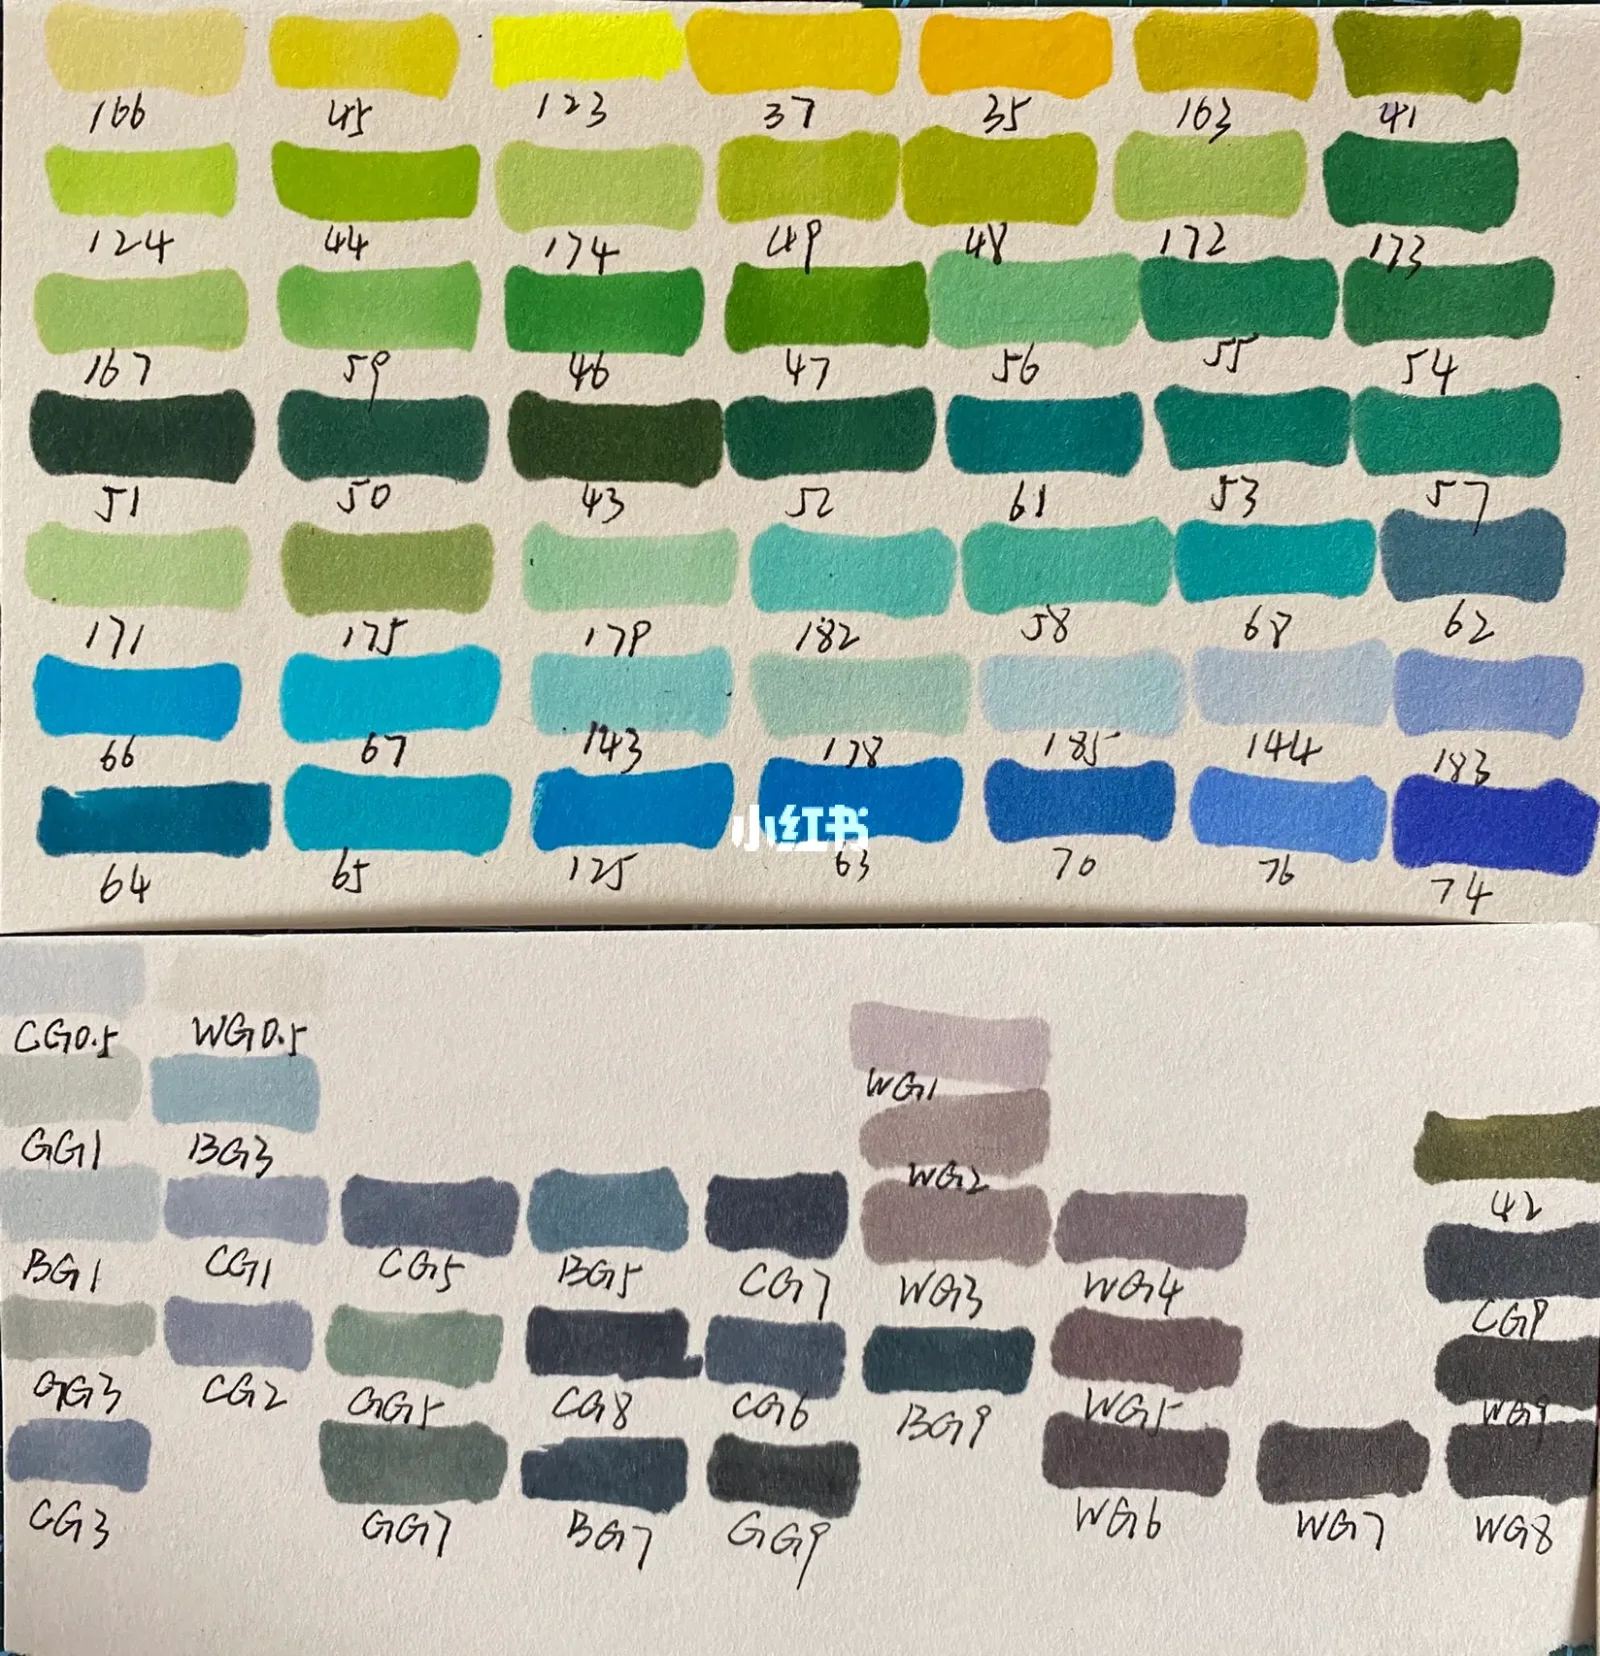 166 45 123 37 35 163 41
124 44 174 49 48 172 173
167 59 46 47 56 55 54
51 50 43 52 61 53 57
171 175 179 182 58 68 62
66 67 143 178 185 144 183
小红书
64 65 125 63 70 76 74
CG0.5 WG0.5
WG1
GG1 BG3
WG2
42
BG1 CG1 CG5 BG5 CG7 WG3 WG4
CG9
GG3 CG2 GG5 CG8 CG6 BG9 WG5 WG9
CG3 GG7 BG7 GG9 WG6 WG7 WG8